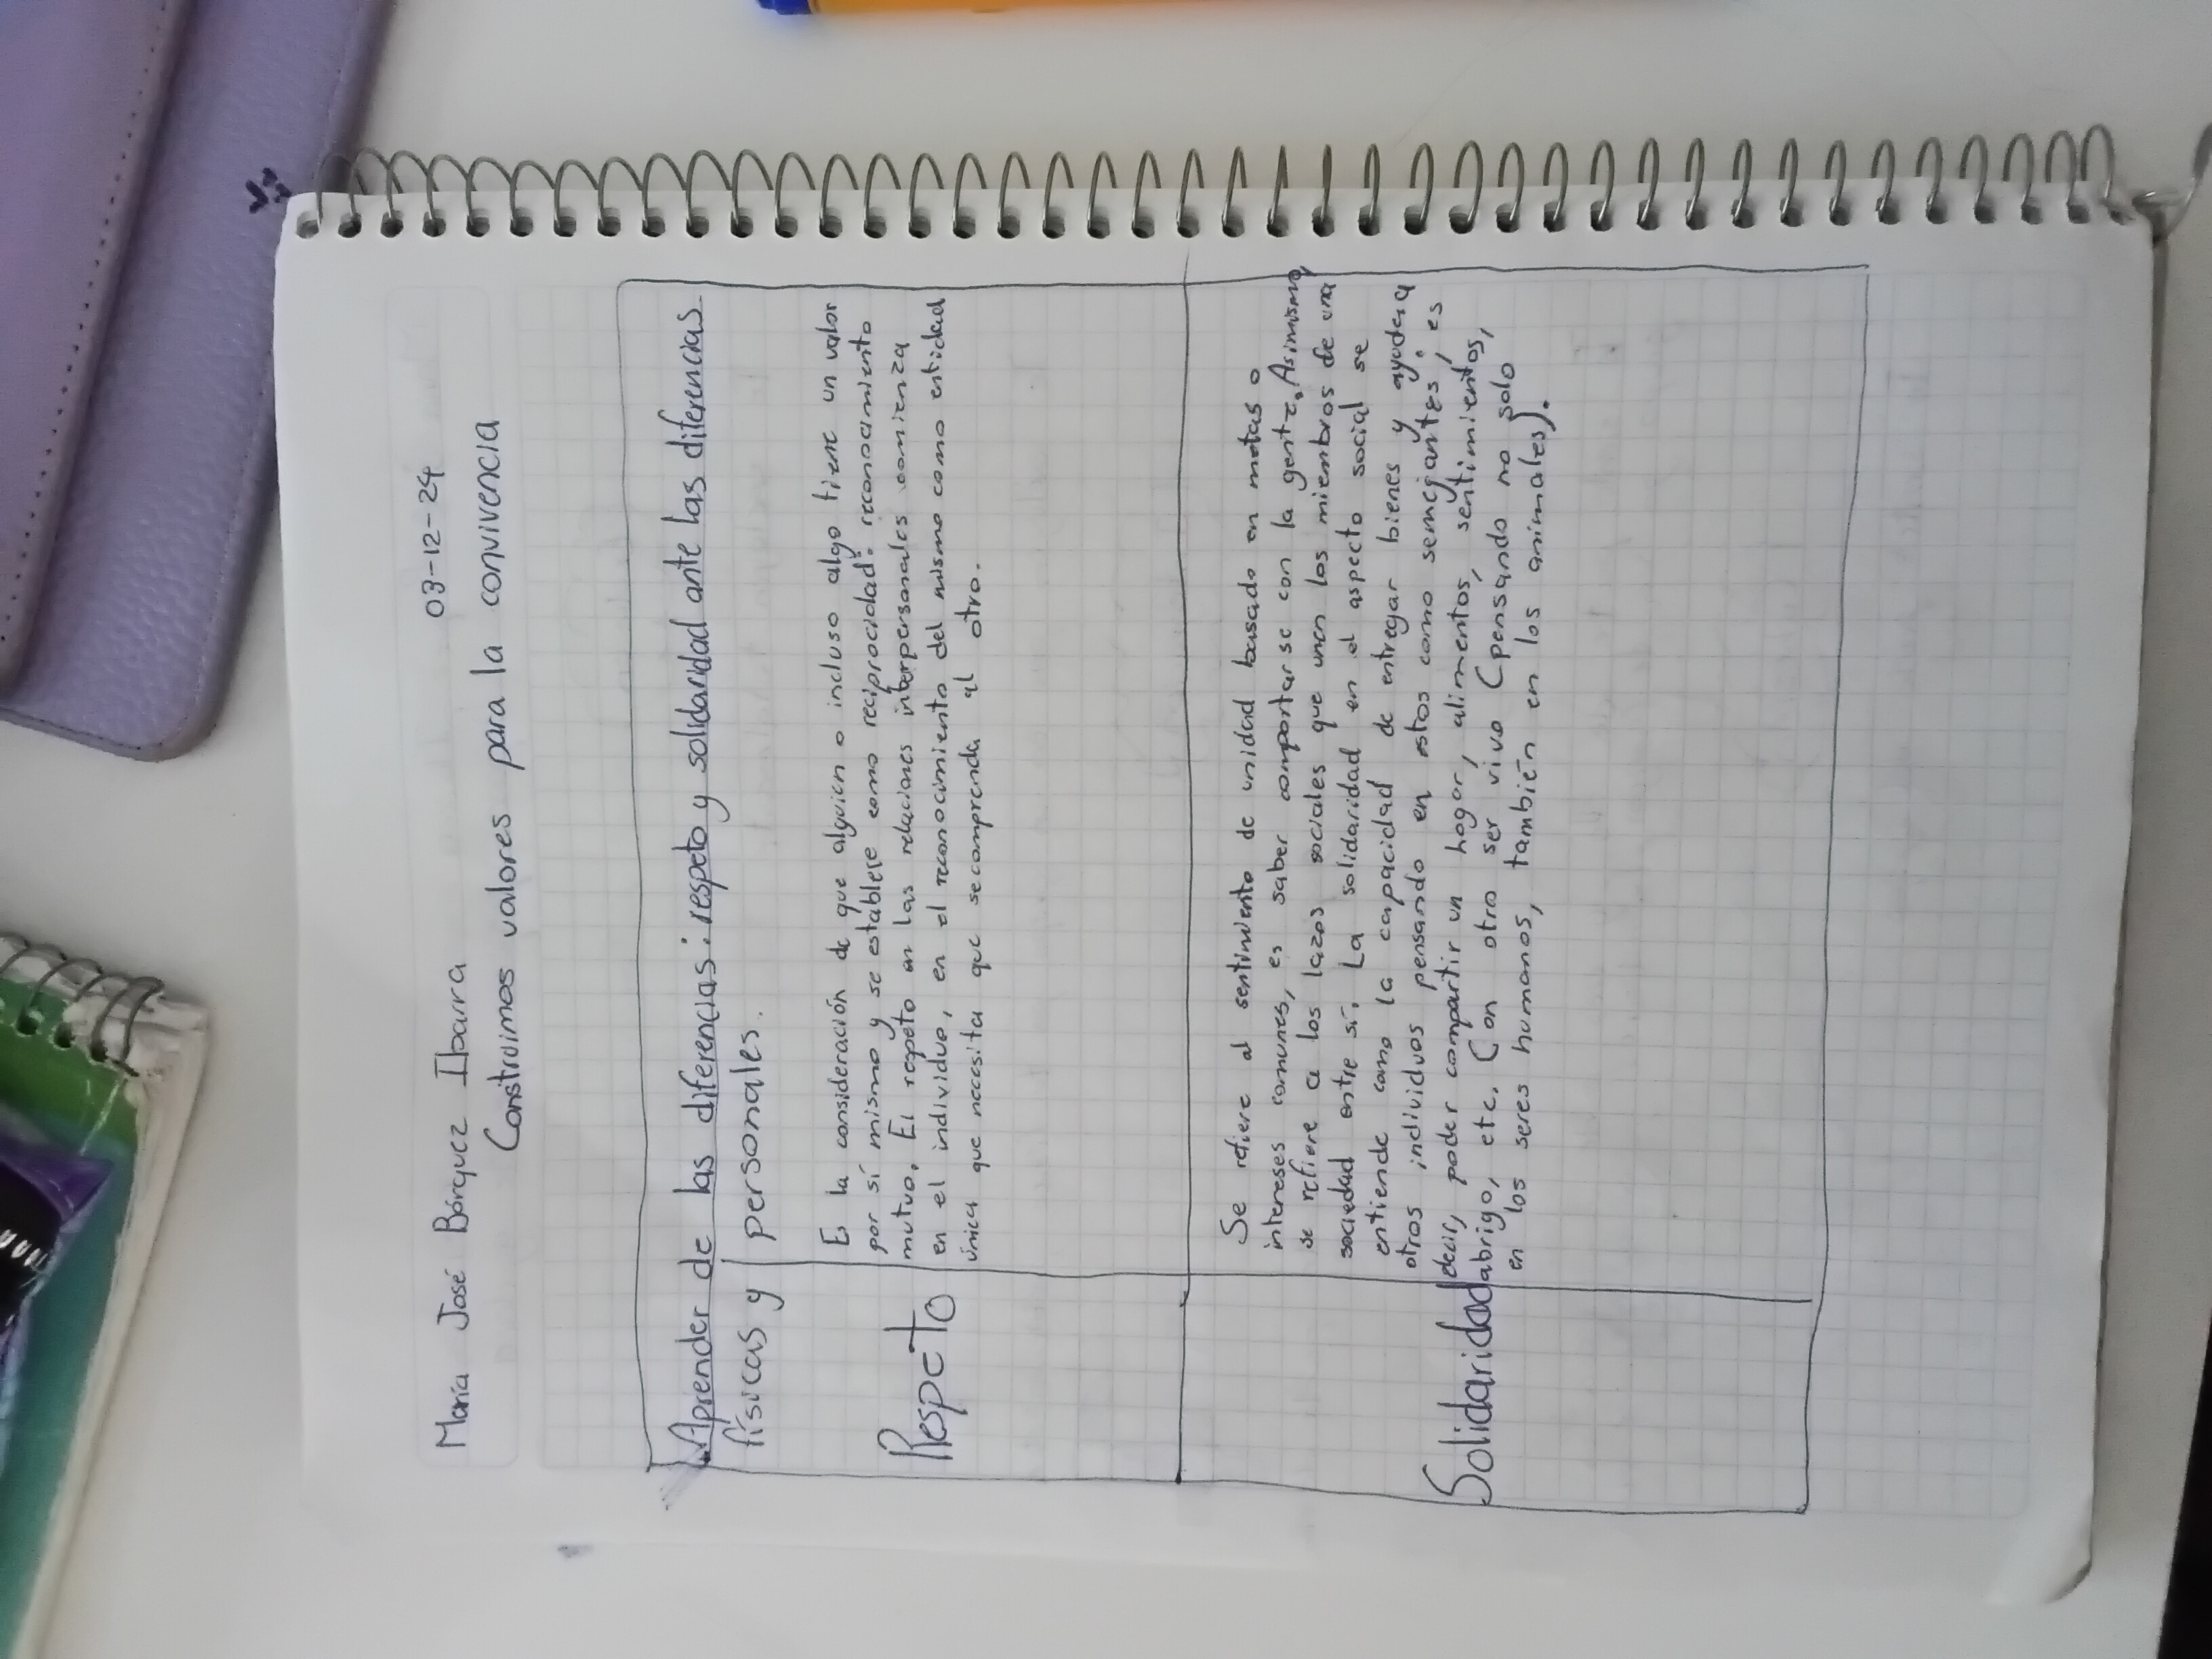 María José Bórquez Ibarra 03-12-24
Construimos valores para la convivencia
Aprender de las diferencias: respeto y solidaridad ante las diferencias
físicas y personales.
Respeto
Es la consideración de que alguien o incluso algo tiene un valor
por sí mismo y se establece como reciprocidad: reconocimiento
mutuo. El respeto en las relaciones interpersonales comienza
en el individuo, en el reconocimiento del mismo como entidad
única que necesita que se comprenda al otro.
Solidaridad
Se refiere al sentimiento de unidad basado en metas o
intereses comunes, es saber comportarse con la gente. Asimismo,
se refiere a los lazos sociales que unen los miembros de una
sociedad entre sí. La solidaridad en el aspecto social se
entiende como la capacidad de entregar bienes y ayudar a
otros individuos pensando en estos como semejantes; es
decir, poder compartir un hogar, alimentos, sentimientos,
abrigo, etc. Con otro ser vivo (pensando no solo
en los seres humanos, también en los animales).